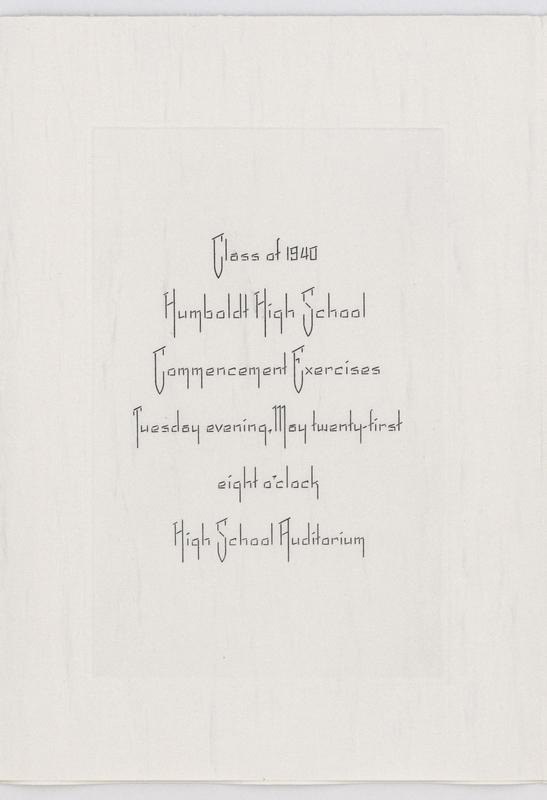 Class of 1940
Humboldt High School
Commencement Exercises
Tuesday evening, May twenty-first
eight o'clock
High School Auditorium